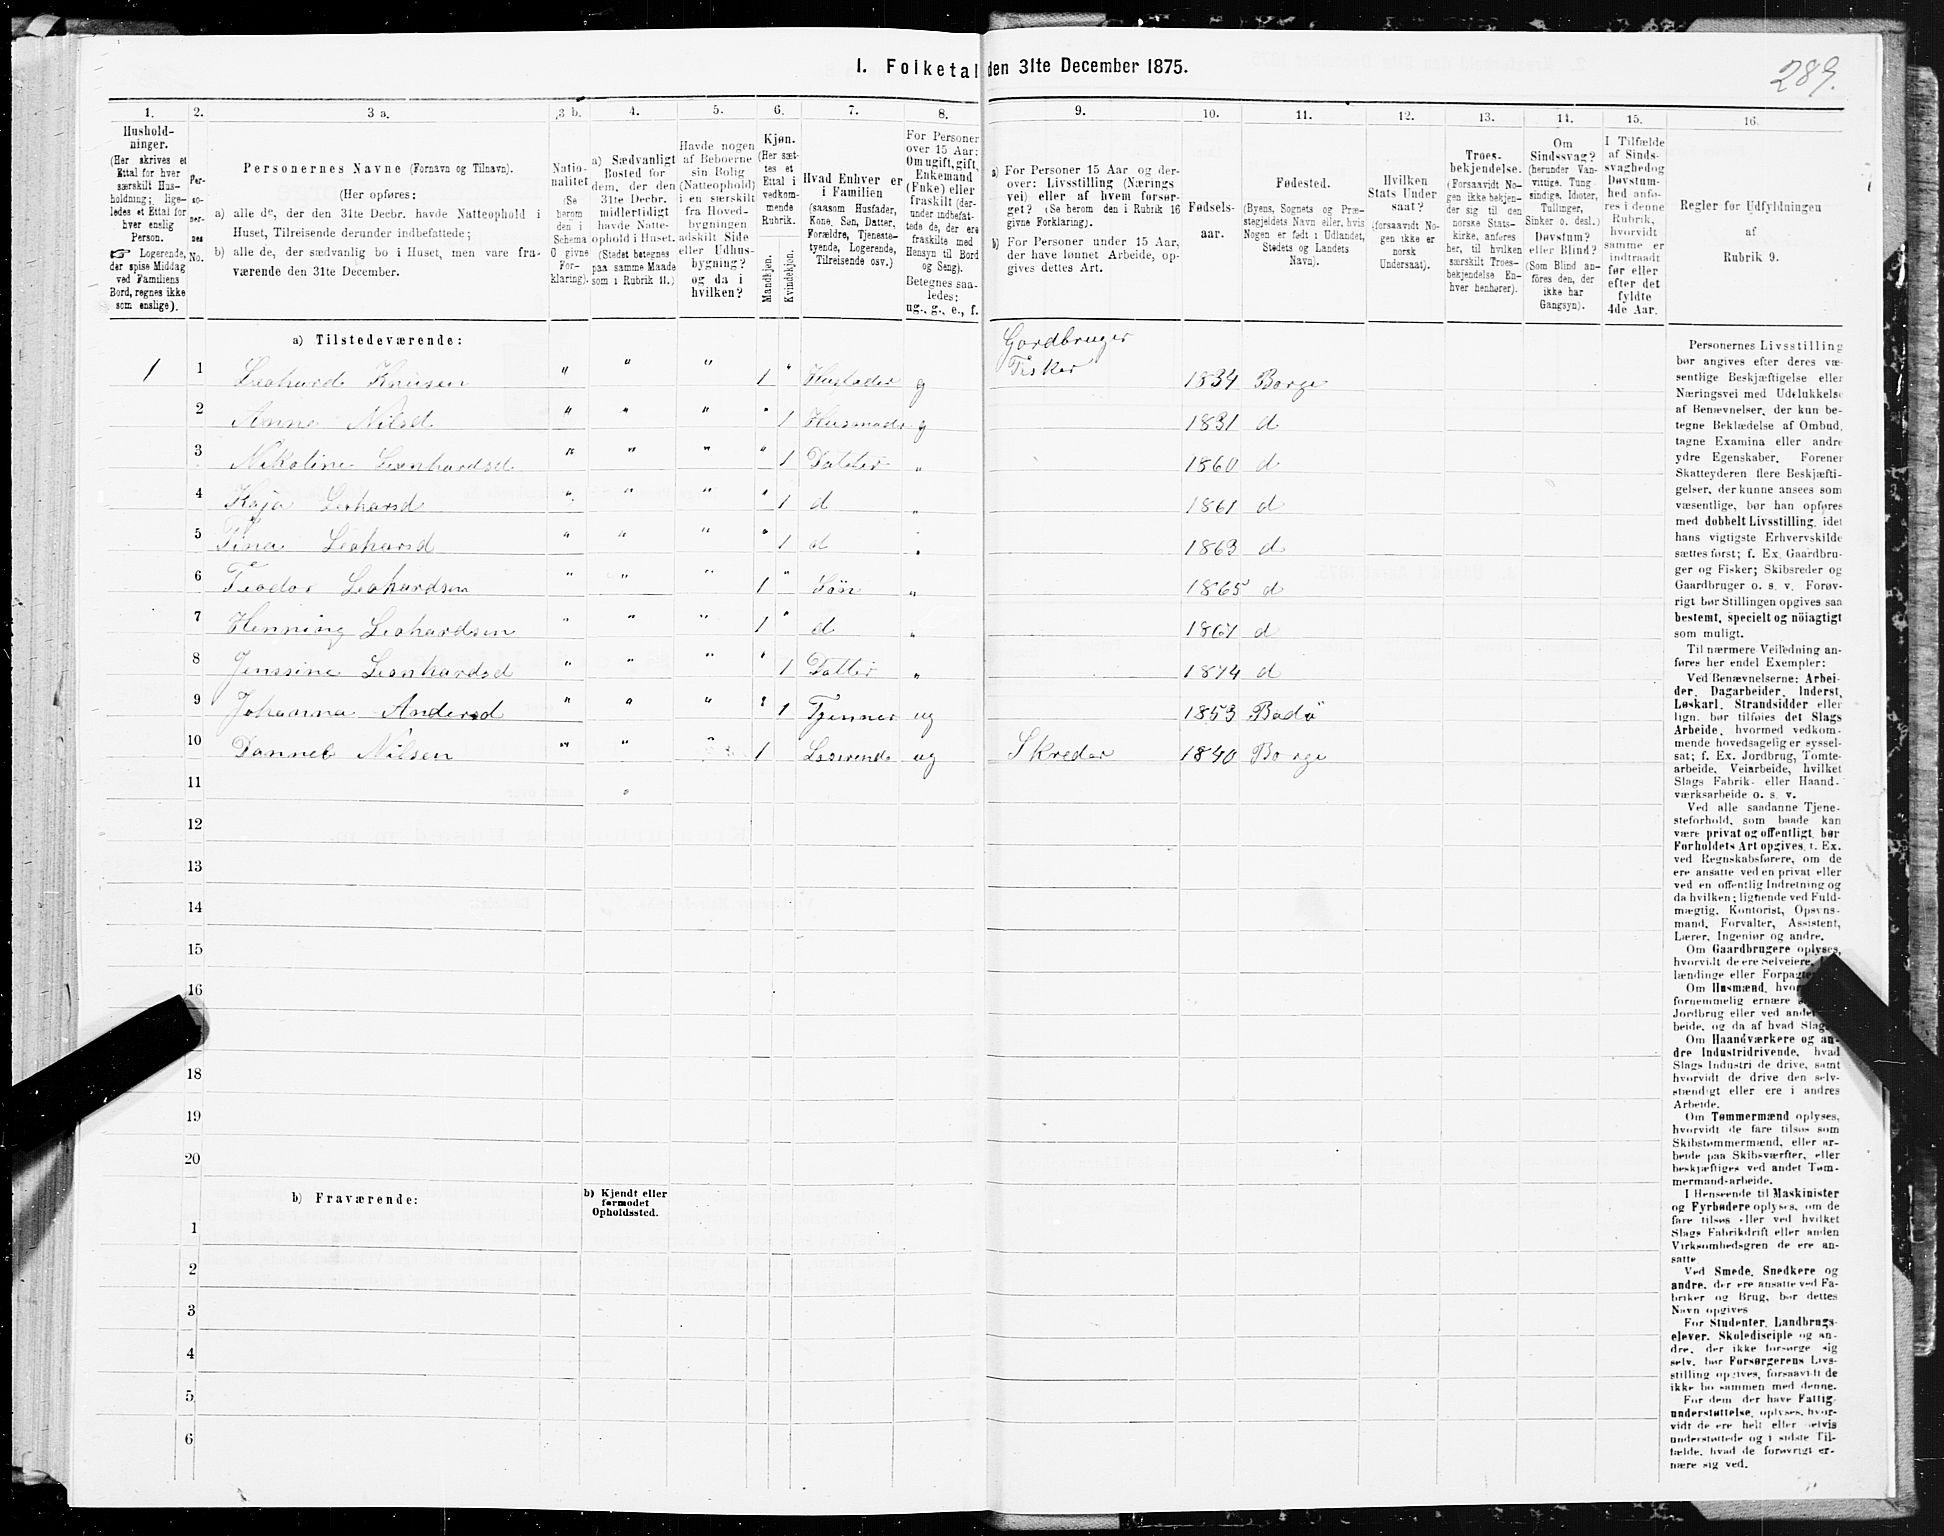 1. Folketal den 31te December 1875.
289.
1.
Hushold-
ninger.
(Her skrives et
Ettal for hver
særskilt Hus-
holdning; lige-
ledes et Ettal for
hver enslig
Person.
☞ Logerende,
der spise Middag
ved Familiens
Bord, regnes ikke
som enslige).
2.
Per-
so-
ner-
nes
No.
3 a.
Personernes Navne (Fornavn og Tilnavn).
(Her opføres:
a) alle de, der den 31te Decbr. havde Natteophold i
Huset, Tilreisende derunder indbefattede;
b) alle de, der sædvanlig bo i Huset, men vare fra-
værende den 31te December.
3 b.
Natio-
nalitet
(Se
herom
den i
Schema
O givne
For-
klaring).
4.
a) Sædvanligt
Bosted for
dem, der den
31te Decbr.
midlertidigt
havde Natte-
ophold i Huset.
(Stedet betegnes
paa samme Maade
som i Rubrik 11.)
5.
Havde nogen
af Beboerne
sin Bolig
(Natteophold)
i en særskilt
fra Hoved-
bygningen
adskilt Side
eller Udhus-
bygning?
og da i
hvilken?
6.
Kjøn.
(Her sæt-
tes et
Ettal i
vedkom-
mende
Rubrik.
Mandkjøn.
Kvindekjøn.
7.
Hvad Enhver er
i Familien
(saasom Husfader,
Kone, Søn, Datter,
Forældre, Tjeneste-
tyende, Logerende,
Tilreisende osv.)
8.
For Personer
over 15 Aar:
Om ugift, gift,
Enkemand
(Enke) eller
fraskilt (der-
under indbefat-
tede de, der ere
fraskilte med
Hensyn til Bord
og Seng).
Betegnes saa-
ledes:
ug., g., e., f.
9.
a) For Personer 15 Aar og der-
over: Livsstilling (Nærings
vei) eller af hvem forsør-
get? (Se herom den i Rubrik 16
givne Forklaring).
b) For Personer under 15 Aar,
der have lønnet Arbeide, op-
gives dettes Art.
10.
Fødsels-
aar.
11.
Fødested.
(Byens, Sognets og Præ-
stegjeldets Navn eller, hvis
Nogen er født i Udlandet,
Stedets og Landets
Navn).
12.
Hvilken
Stats Under
saat?
(forsaavidt No-
gen ikke er
norsk
Undersaat).
13.
Troes-
bekjendelse.
(Forsaavidt No-
gen ikke bekjen-
der sig til den
norske Stats-
kirke, anføres
her, til hvilken
særskilt Troes-
bekjendelse En-
hver henhører).
14.
Om
Sindssvag?
(herunder Van-
vittige, Tung
sindige, Idioter,
Tullinger,
Sinker o. desl.)
Døvstum?
eller Blind?
(Som Blind an-
føres den, der
ikke har
Gangsyn).
15.
I Tilfælde
af Sinds-
svaghed og
Døvstum-
hed anfø-
res i denne
Rubrik,
hvorvidt
samme er
indtraadt
før eller
efter det
fyldte
4de Aar.
16.
Regler for Udfyldningen
af
Rubrik 9.
a) Tilstedeværende:
Gordbruger
1 1 Leohard Knusen " " " 1 " Husfader g Fisker 1834 Borge
2 Anne Nilsd " " " " 1 Husmoder g 1831 d
3 Nikoline Leonhardsd " " " " 1 Datter " 1860 d
4 Kaja Leoharsd " " " " 1 d " 1861 d
5 Tina Leoharsd " " " " 1 d " 1863 d
6 Teodor Leohardsen " " " 1 " Søn " 1865 d
7 Henning Leohardsen " " " 1 " d " 1867 d
8 Jenssine Leonhardsd " " " " 1 Datter " 1874 d
9 Johanna Andersd " " " " 1 Tjenner ug 1853 Bodö
10 Dannel Nilsen " " " 1 Loserende ug Skredar 1840 Borge
11 "
12
13
14
15
16
18
19
20
b) Fraværende:
b) Kjendt eller
formodet
Opholdssted.
1
2
3
4
5
6
Personernes Livsstilling
bør angives efter deres væ-
sentlige Beskjæftigelse eller
Næringsvei med Udelukkelse
af Benævnelser, der kun be-
tegne Beklædelse af Ombud,
tagne Examina eller andre
ydre Egenskaber. Forener
Skatteyderen flere Beskjæfti-
gelser, der kunne ansees som
væsentlige, bør han opføres
med dobbelt Livsstilling, idet
hans vigtigste Erhvervskilde
sættes først; f. Ex. Gaardbru-
ger og Fisker; Skibsreder og
Gaardbruger o. s. v. Forøv-
rigt bør Stillingen opgives saa
bestemt, specielt og nöiagtigt
som muligt.
Til nærmere Veiledning an-
føres her endel Exempler:
Ved Benævnelserne: Arbei-
der, Dagarbeider, Inderst,
Løskarl, Strandsidder eller
lign. bør tilføies det Slags
Arbeide, hvormed vedkom-
mende hovedsagelig er syssel-
sat; f. Ex. Jordbrug, Tomte-
arbeide, Veiarbeide, hvilket
Slags Fabrik- eller Haand-
værksarbeide o. s. v.
Ved alle saadanne Tjene-
steforhold, som baade kan
være privat og offentligt, bør
Forholdets Art opgives, f. Ex.
ved Regnskabsførere, om de
ere ansatte ved en privat eller
ved en offentlig Indretning og
da hvilken; lignende ved Fuld-
mægtig, Kontorist, Opsyns-
mand, Forvalter, Assistent,
Lærer, Ingeniør og andre.
Om Gaardbrugere oplyses,
hvorvidt de ere Selveiere,
lændinge eller Forpagtere
Om Husmænd,
fornemmelig ernære
Jordbrug eller ved
beide, og da af hvad
Om Haandværkere og an-
dre Industridrivende, hvad
Slags Industri de drive, samt
hvorvidt de drive den selv-
stændigt eller ere i andres
Arbeide.
Om Tømmermænd oplyses,
hvorvidt de fare tilsøs som
Skibstømmermænd, eller ar-
beide paa Skibsværfter, eller
beskjæftiges ved andet Tøm-
mermand-arbeide.
I Henseende til Maskinister
og Fyrbødere oplyses, om de
fare tilsøs eller ved hvilket
Slags Fabrikdrift eller anden
Virksomhedsgren de ere an-
satte
Ved Smede, Snedkere og
andre, der ere ansatte ved Fa-
briker og Brug, bør dettes
Navn opgives
For Studenter, Landbrugs-
elever, Skoledisciple og an-
dre, der ikke forsørge sig
selv, bør Forsørgerens Livs-
stilling opgives, forsaavidt de
ikke bo sammen med denne.
For dem, der have Fattig-
understøttelse, oplyses, hvor-
vidt de ere helt eller delvis
understøttede og i sidste Til-
fælde, hvad de forøvrigt er-
nære sig ved.